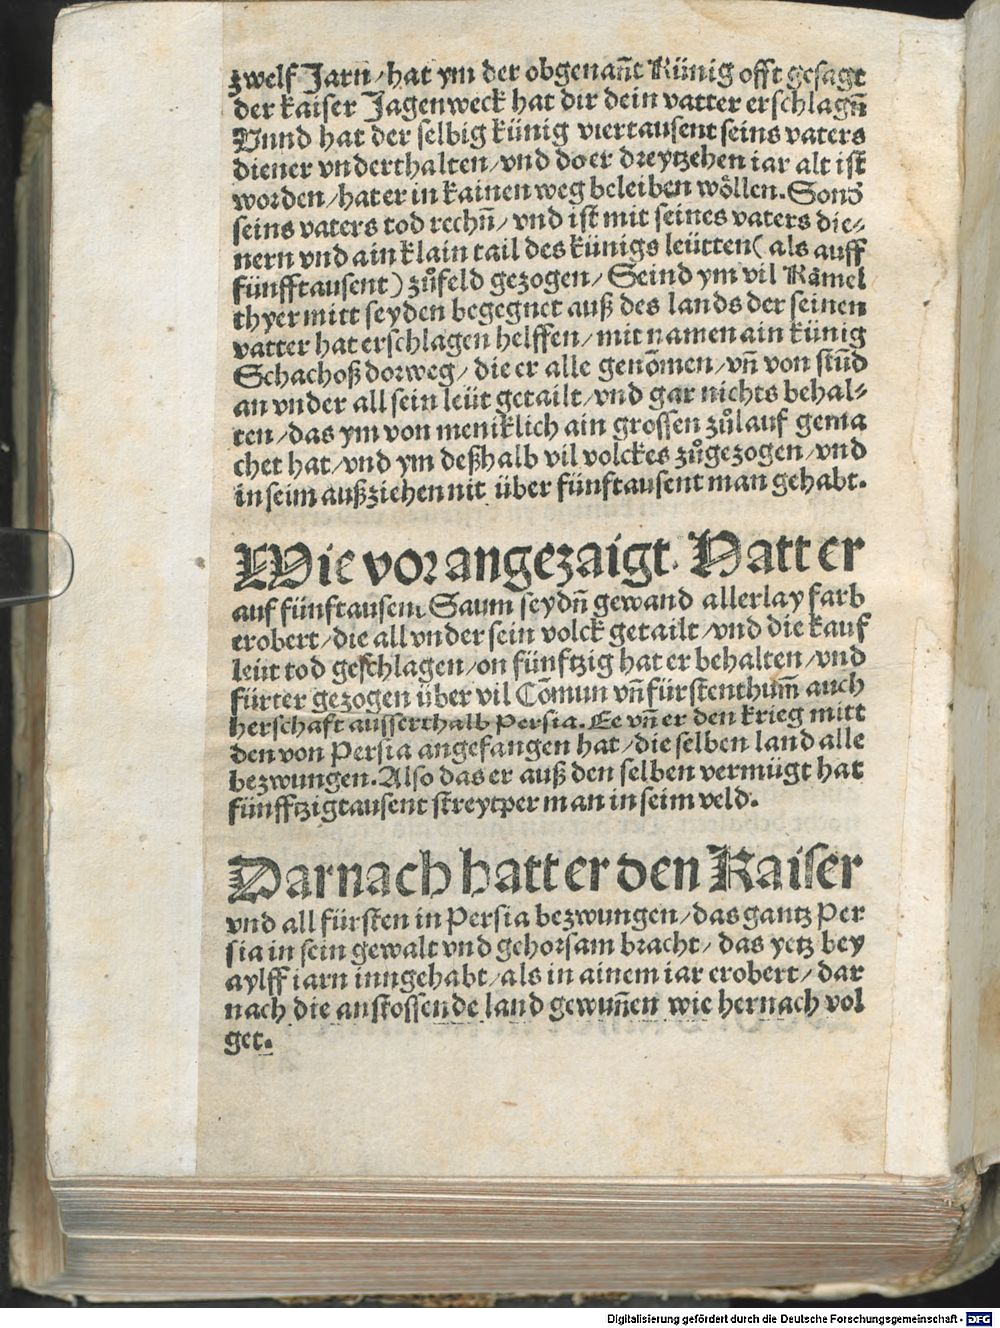 zwelf Jarn/hat ym der obgenañt Künig offt gesagt
der kaiser Jagenweck hat dir dein vatter erschlagñ
Vnnd hat der selbig künig viertausent seins vaters
diener vnderthalten/vnd do er dreytzehen iar alt ist
worden/hat er in kainen weg beleiben wöllen. Sonđ
seins vaters tod rechñ/ vnd ist mit seines vaters die-
nern vnd ain klain tail des künigs leütten( als auff
fünfftausent) zůfeld gezogen/ Seind ym vil Kämel
thyer mitt seyden begegnet auß des lands der seinen
vatter hat erschlagen helffen/ mit namen ain künig
Schachoß dorweg/ die er alle genõmen/vñ von stũd
an vnder all sein leüt getailt/vnd gar nichts behal-
ten/das ym von meniklich ain grossen zůlauf gema
chet hat/vnd ym deßhalb vil volckes zůgezogen/vnd
in seim außziehen nit über fünftausent man gehabt.
Wie vor angezaigt. Hatt er
auf fünftausent Saum seydñ gewand allerlay farb
erobert/die all vnder sein volck getailt/vnd die kauf
leüt tod geschlagen/on fünftzig hat er behalten/vnd
fürter gezogen über vil Cõmun vñ fürstenthum̃ auch
herschaft ausserthalb Persia. Ee vñ er den krieg mitt
den von Persia angefangen hat/die selben land alle
bezwungen. Also das er auß den selben vermügt hat
fünfftzigtausent streytper man in seim veld.
Darnach hatt er den Kaiser
vnd all fürsten in Persia bezwungen/das gantz Per
sia in sein gewalt vnd gehorsam bracht/ das yetz bey
aylff iarn inngehabt/als in ainem iar erobert/ dar
nach die anstossende land gewuñen wie hernach vol
get.
Digitalisierung gefördert durch die Deutsche Forschungsgemeinschaft - DFG